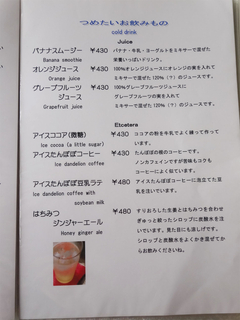 つめたいお飲みもの
cold drink
Juice
バナナスムージー ￥430 バナナ・牛乳・ヨーグルトをミキサーで混ぜた
Banana smoothie 栄養いっぱいドリンク。
オレンジジュース ￥430 100%オレンジジュースにオレンジの実を入れて
Orange juice ミキサーで混ぜた120%（？）のジュースです。
グレープフルーツ ￥430 100%グレープフルーツジュースに
ジュース グレープフルーツの実を入れて
Grapefruit juice ミキサーで混ぜた120%（？）のジュースです。
Etcetera
アイスココア（微糖） ￥430 ココアの粉を牛乳でよく練って作って
Ice cocoa (a little sugar) います。
アイスたんぽぽコーヒー ￥430 たんぽぽの根のコーヒーです。
Ice dandelion coffee ノンカフェインですが苦味もコクも
コーヒーによく似ています。
アイスたんぽぽ豆乳ラテ ￥480 アイスたんぽぽコーヒーに泡立てた豆
Ice dandelion coffee with 乳を注いでいます。
soybean milk
はちみつ ￥480 すりおろした生姜とはちみつを合わせ
ジンジャーエール ぎゅっと絞ったシロップに炭酸水を注
Honey ginger ale いでいます。見た目にも涼しげです。
シロップと炭酸水をよくかき混ぜてから
お飲みくださいね。